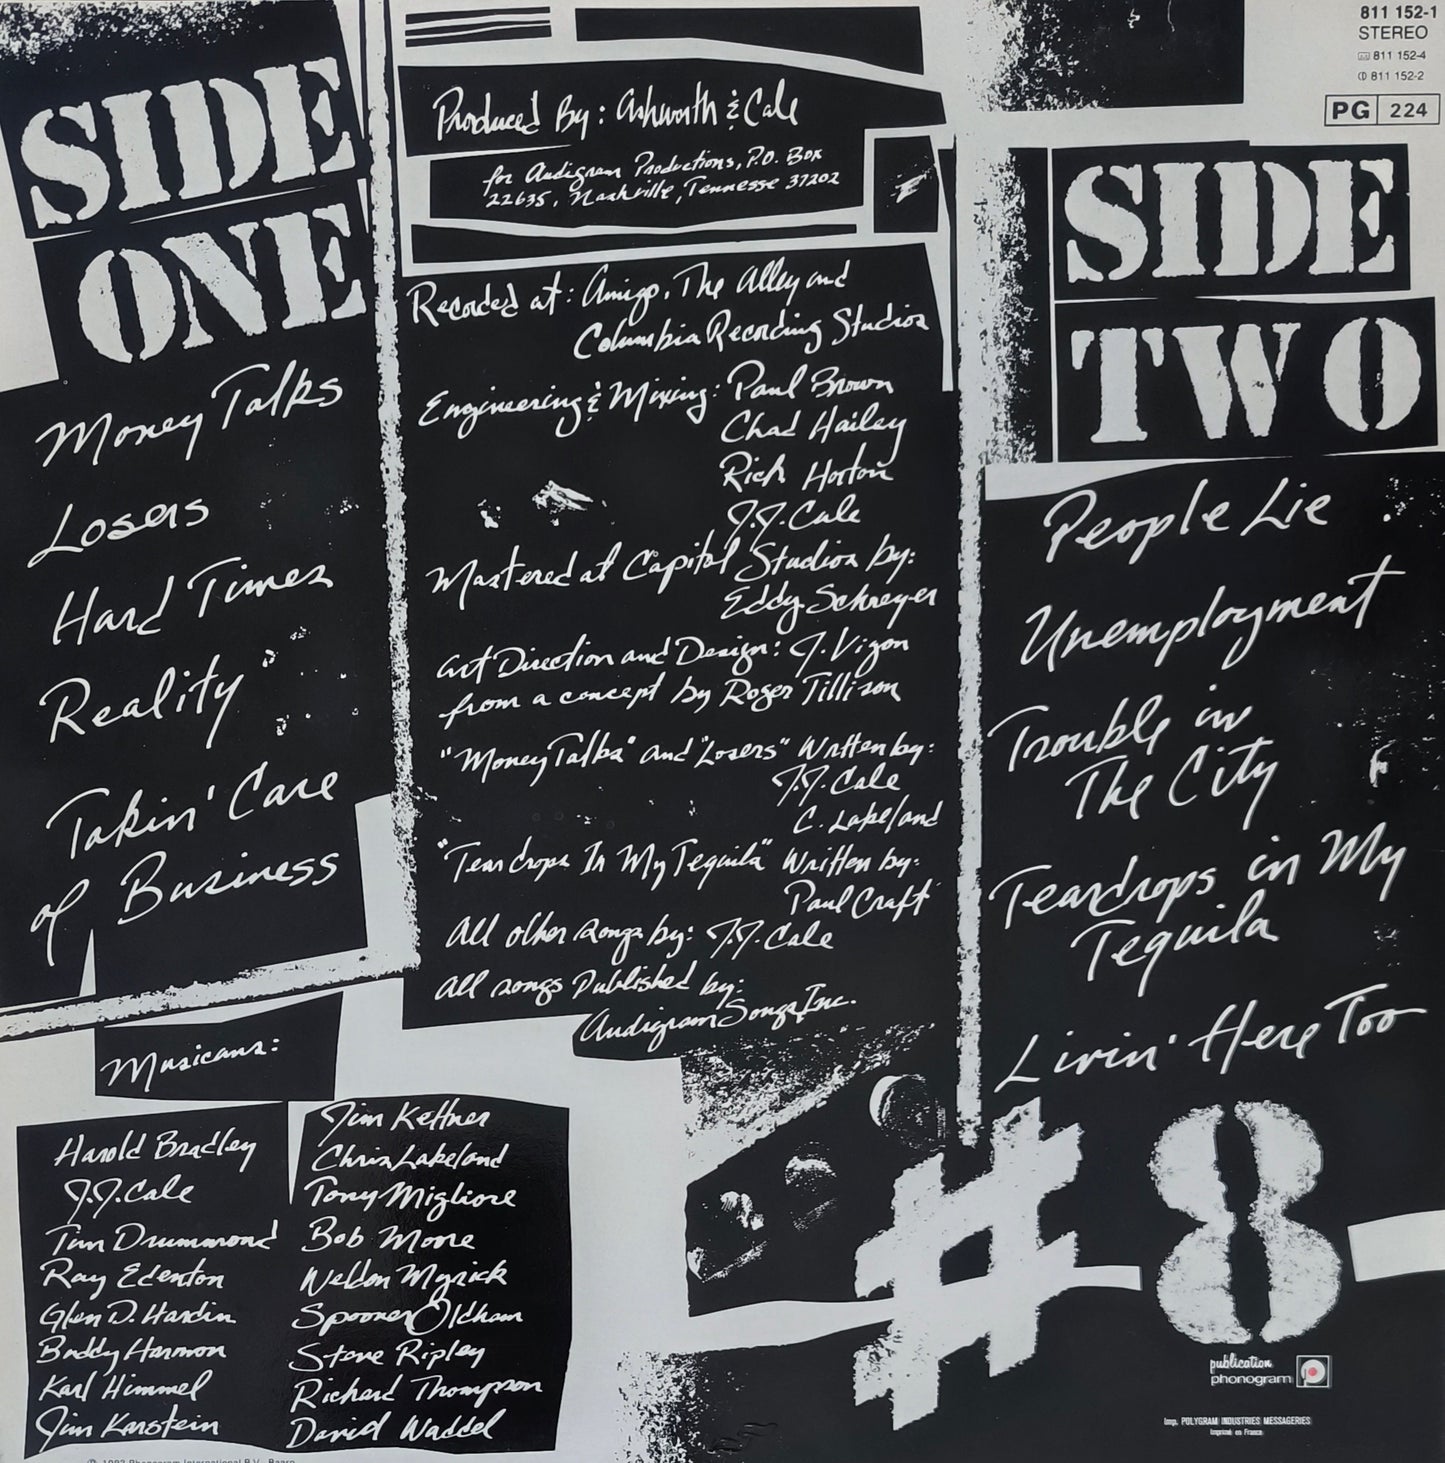 SIDE
ONE
Money Talks
Losers
Hard Times
Reality
Takin' Care
of Business
Produced By: Ashworth & Cale
for Audigram Productions, P.O. Box
22635, Nashville, Tennesse 37202
Recorded at: Amigo, The Alley and
Columbia Recording Studios
Engineering & Mixing: Paul Brown
Chad Hailey
Rich Horton
J.J. Cale
Mastered at Capitol Studios by:
Eddy Schreyer
Art Direction and Design: J. Vigon
from a concept by Roger Tillison
"Money Talks" and "Losers" Written by:
J.J. Cale
C. Lakeland
"Teardrops In My Tequila" Written by:
Paul Craft
All other songs by: J.J. Cale
All songs Published by:
Audigram Songs, Inc.
811 152-1
STEREO
811 152-4
811 152-2
PG 224
SIDE
TWO
People Lie
Unemployment
Trouble in
The City
Teardrops in My
Tequila
Livin' Here Too
Musicans:
Harold Bradley
J.J. Cale
Tim Drummond
Ray Edenton
Glen D. Hardin
Buddy Harmon
Karl Himmel
Jim Karstein
Jim Keltner
Chris Lakeland
Tony Migliore
Bob Moore
Weldon Myrick
Spooner Oldham
Steve Ripley
Richard Thompson
David Waddel
#8
publication
phonogram
Imp. POLYGRAM INDUSTRIES MESSAGERIES
Imprimé en France